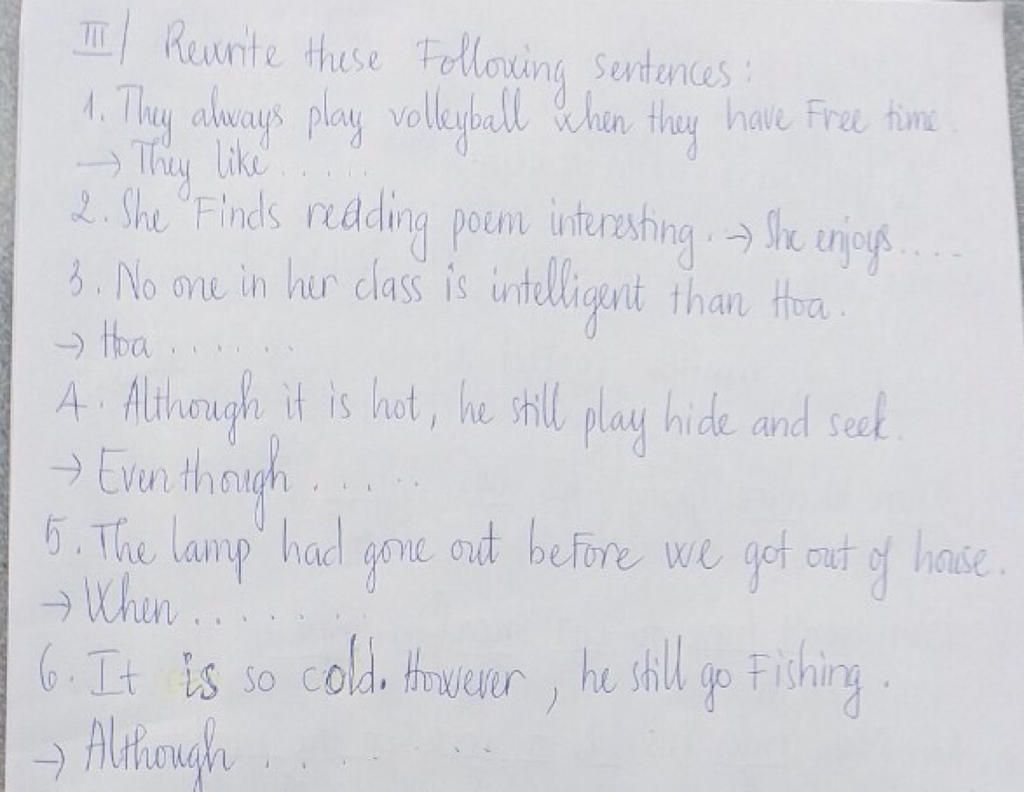 III/ Rewrite these Following sentences:
1. They always play volleyball when they have Free time.
→ They like.....
2. She Finds reading poem interesting. → She enjoys....
3. No one in her class is intelligent than Hoa.
→ Hoa ......
4. Although it is hot, he still play hide and seek.
→ Even though .....
5. The lamp had gone out before we got out of house.
→ When .......
6. It is so cold. However, he still go Fishing.
→ Although .......